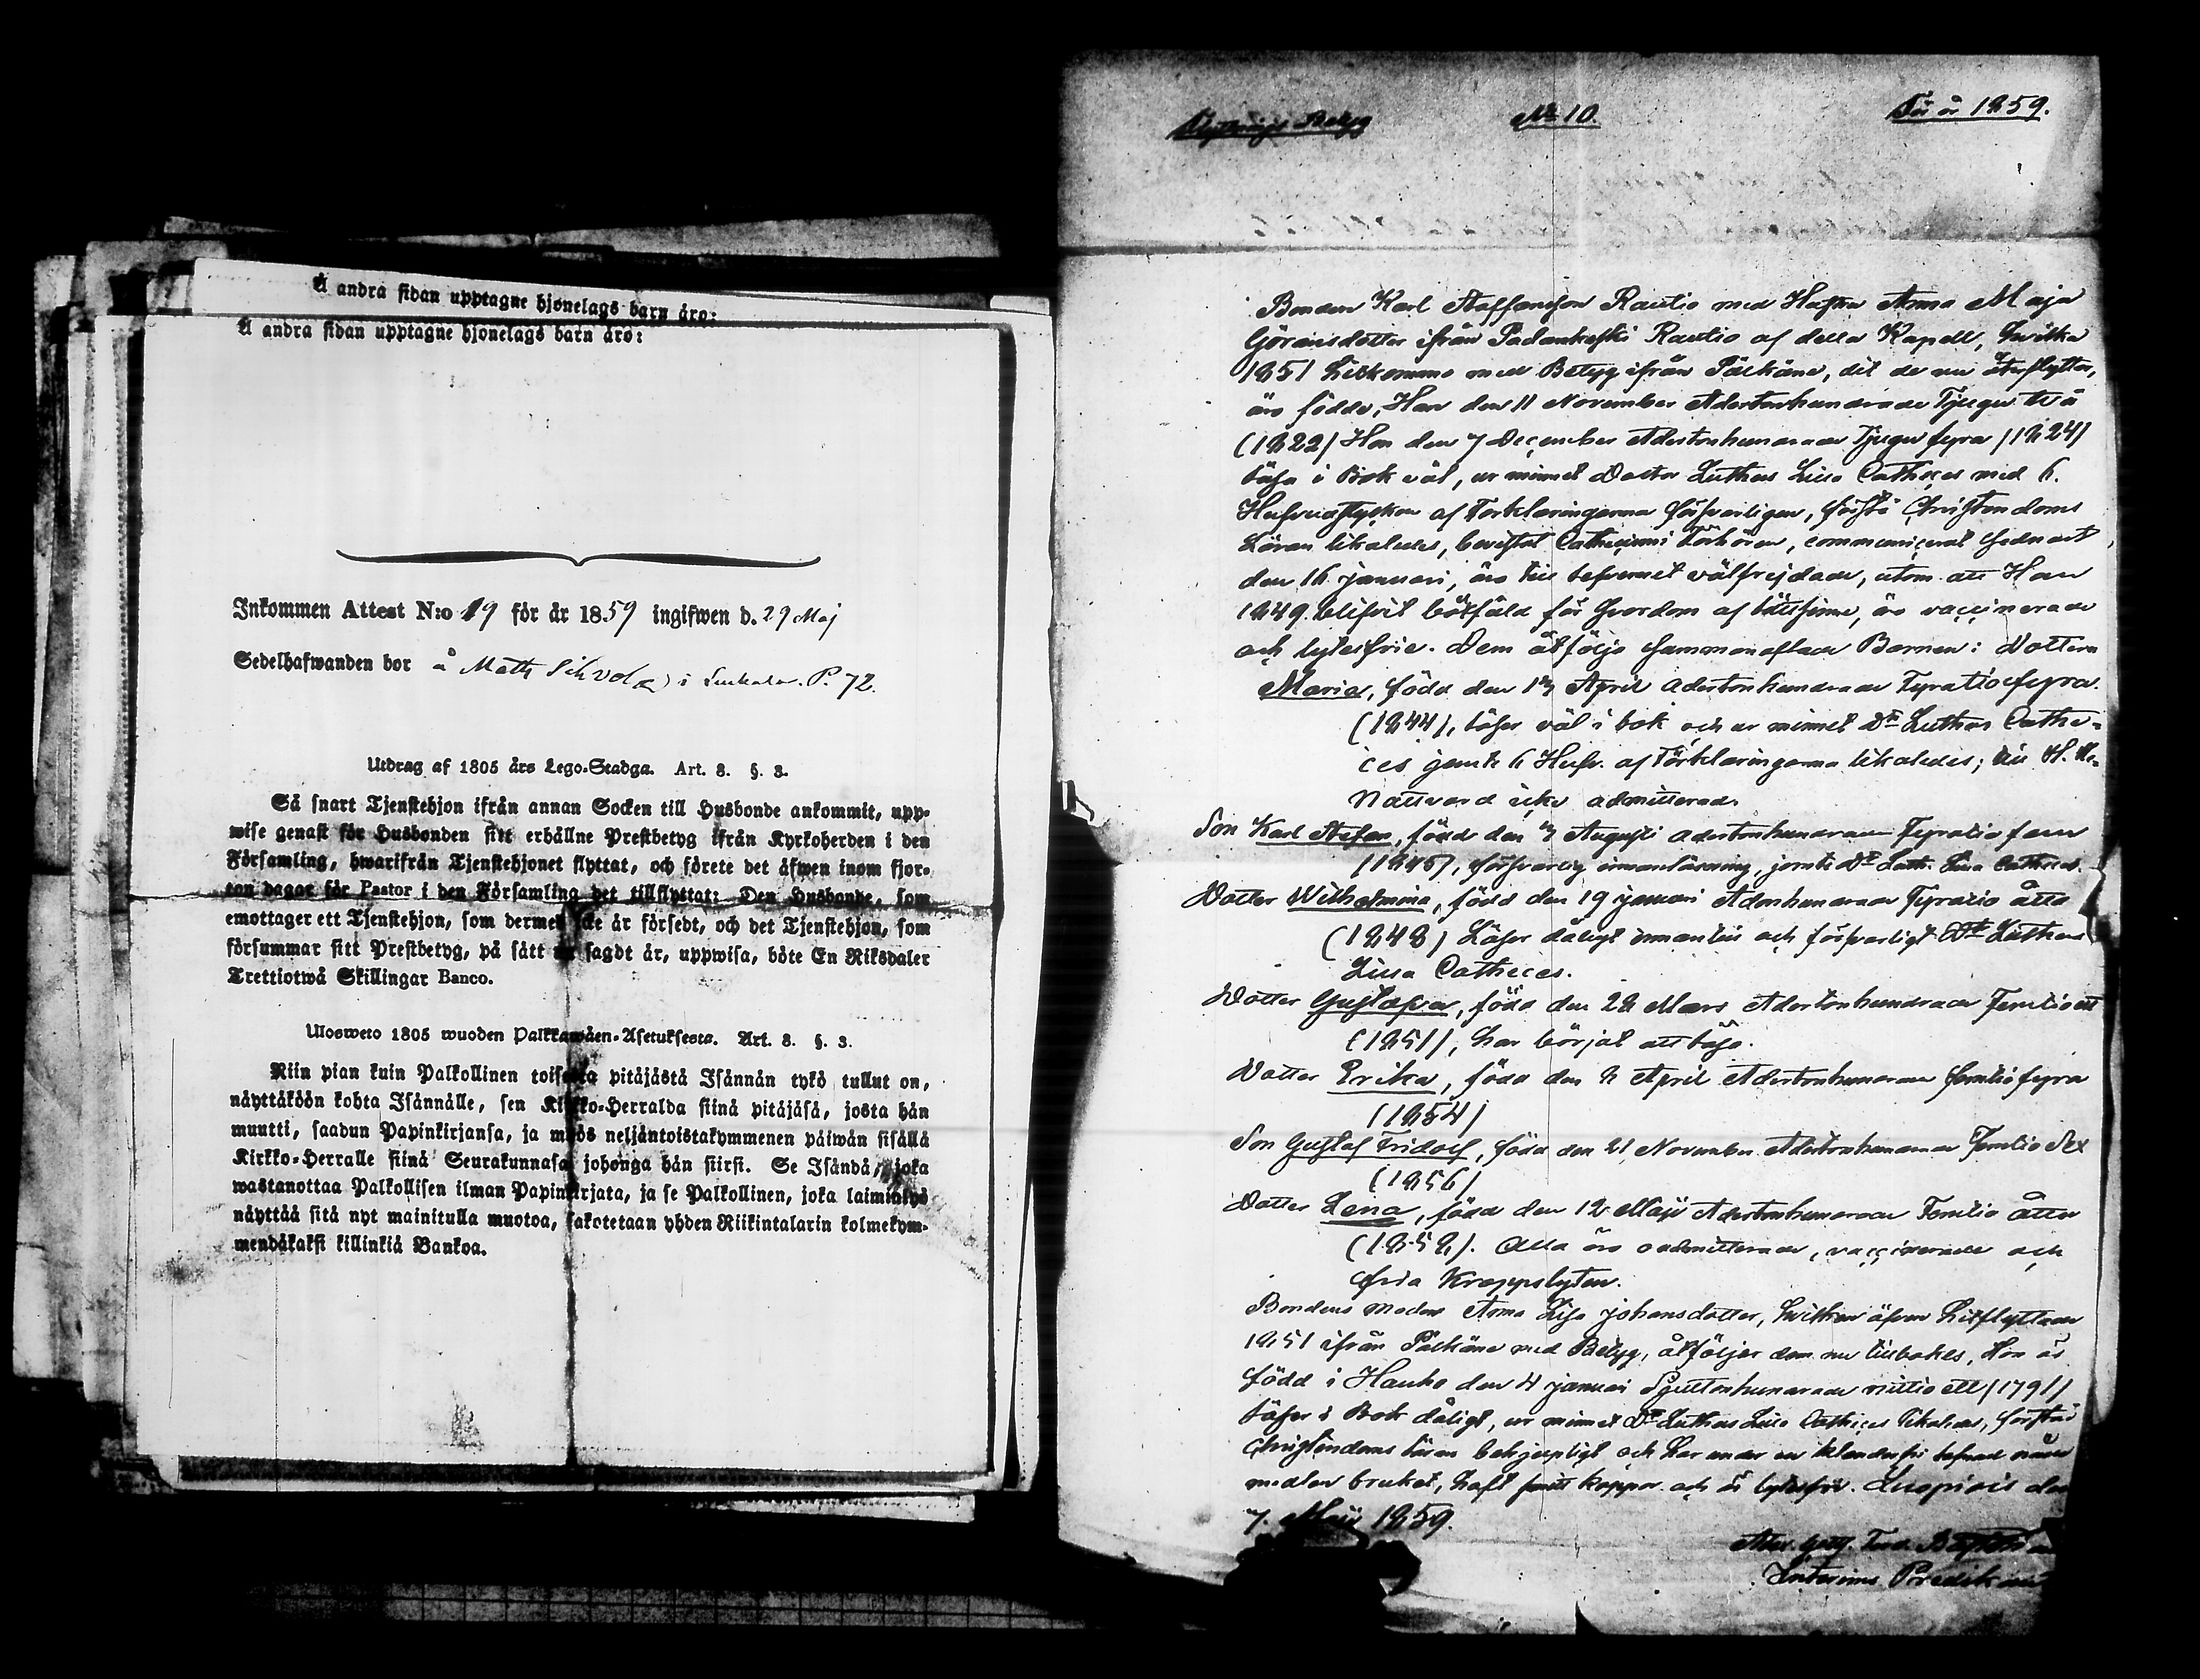 Å andra sidan upptagne hjonelags barn äro:
Å andra sidan upptagne hjonelags barn äro:
Inkommen Attest N:o 19 för år 1859 ingifwen d. 29 Maj
Sedelhafwanden bor å Matts P. 72.
Utdrag af 1805 års Lego-Stadga. Art. 8. §. 3.
Så snart Tjenstehjon ifrån annan Socken till Husbonde ankommit, upp-
wise genast för Husbonden sitt erhållne Prestbetyg ifrån Kyrkoherden i den
Församling, hwarifrån Tjenstehjonet flyttat, och förete det äfwen inom fjor-
ton dagar för Pastor i den Församling det tillflyttat: Den Husbonde, som
emottager ett Tjenstehjon, som dermed icke är försedt, och det Tjenstehjon, som
försummar sitt Prestbetyg, på sätt nu sagdt är, uppwisa, böte En Riksdaler
Trettiotwå Skillingar Banco.
Ulosweto 1805 wuoden Palkkawäen-Asetuksesta. Art. 8. §. 3.
Niin pian kuin Palkollinen toisesta pitäjästä Isännän tykö tullut on,
näyttäköön kohta Isännälle, sen Kirkko-Herralda siinä pitäjäsä, josta hän
muutti, saadun Papinkirjansa, ja myös neljäntoistakymmenen päiwän sisällä
Kirkko-Herralle siinä Seurakunnasa johonga hän siirsi. Se Isändä, joka
wastanottaa Palkollisen ilman Papinkirjata, ja se Palkollinen, joka laiminlyö
näyttää sitä nyt mainitulla muotoa, sakotetaan yhden Riikintalarin kolmekym-
mendäkaksi killinkiä Bankoa.
Flyttnings Betyg No 10. För år 1859.
Bonden Karl Staffansson Rautio med Hustru Anna Maja
Göransdotter ifrån Padankoski Rautio af detta Kapell, hwilka
1851 hitkommo med Betyg ifrån Pälkäne, dit de nu återflytta,
äro födde, Han den 11 November Adertonhundrade Tjugu två
(1822) Hon den 7 December Adertonhundrade Tjugu fyra (1824)
läsa i Bok väl, ur minnet Doctor Luthers Lilla Catheces med 6.
Hufvudstycken af Förklaringarna försvarligen, förstå Christendoms
Läran likaledes, bevistat Cathecismi förhören, communicerat sednast
den 16 januari, äro till lefvernet välfrejdade, utom att Han
1849 blifvit bötfäld för hvordom af lättsinne, äro vaccinerade
och lytesfrie. Dem åtfölja sammanaflade Barnen: Dottern
Maria, född den 18 April Adertonhundrade Fyratiofyra.
(1844), läser väl i bok och ur minnet Dr Luthers Cathe-
ces jemte 6 Hufv. af Förklaringarna likaledes; till H. H.
Nattvard icke admitterad.
Son Karl Stefan, född den 8 Augusti Adertonhundrade Fyratio fem
(1845), försvarlig innanläsning, jemte Dr Luth. Lilla Catheces.
Dotter Wilhelmina, född den 19 januari Adertonhundrade Fyratio åtta
(1848) Läser dåligt innantill och försvarligt Dr Luthers
Lilla Catheces.
Dotter Gustafva, född den 28 Mars Adertonhundrade Femtio ett
(1851), har börjat att läsa.
Dotter Erika, född den 8 April Adertonhundrade femtiofyra
(1854)
Son Gustaf Fridolf, född den 21 November Adertonhundrade Femtio Sex
(1856)
Dotter Lena, född den 12 Maji Adertonhundrade Femtio åtta
(1858). Alla äro oadmitterade, vaccinerade och
fria Kroppslyten.
Bondens moder Anna Lisa Johansdotter, hwilken äfven hitflyttade
1851 ifrån Pälkäne med Betyg, åtföljer dem nu tillbakes, Hon är
född i Hauho den 4 januari Sjuttonhundrade nittio ett (1791)
läser i Bok dåligt, ur minnet Dr Luthers Lilla Cathices likaledes, förstår
Christendoms läran behjelpligt och har under en klanderfri lefnad nåde
medlen brukat, haft koppor och är lytesfri. Luopiois den
7. Maji 1859.
Interims Predikant